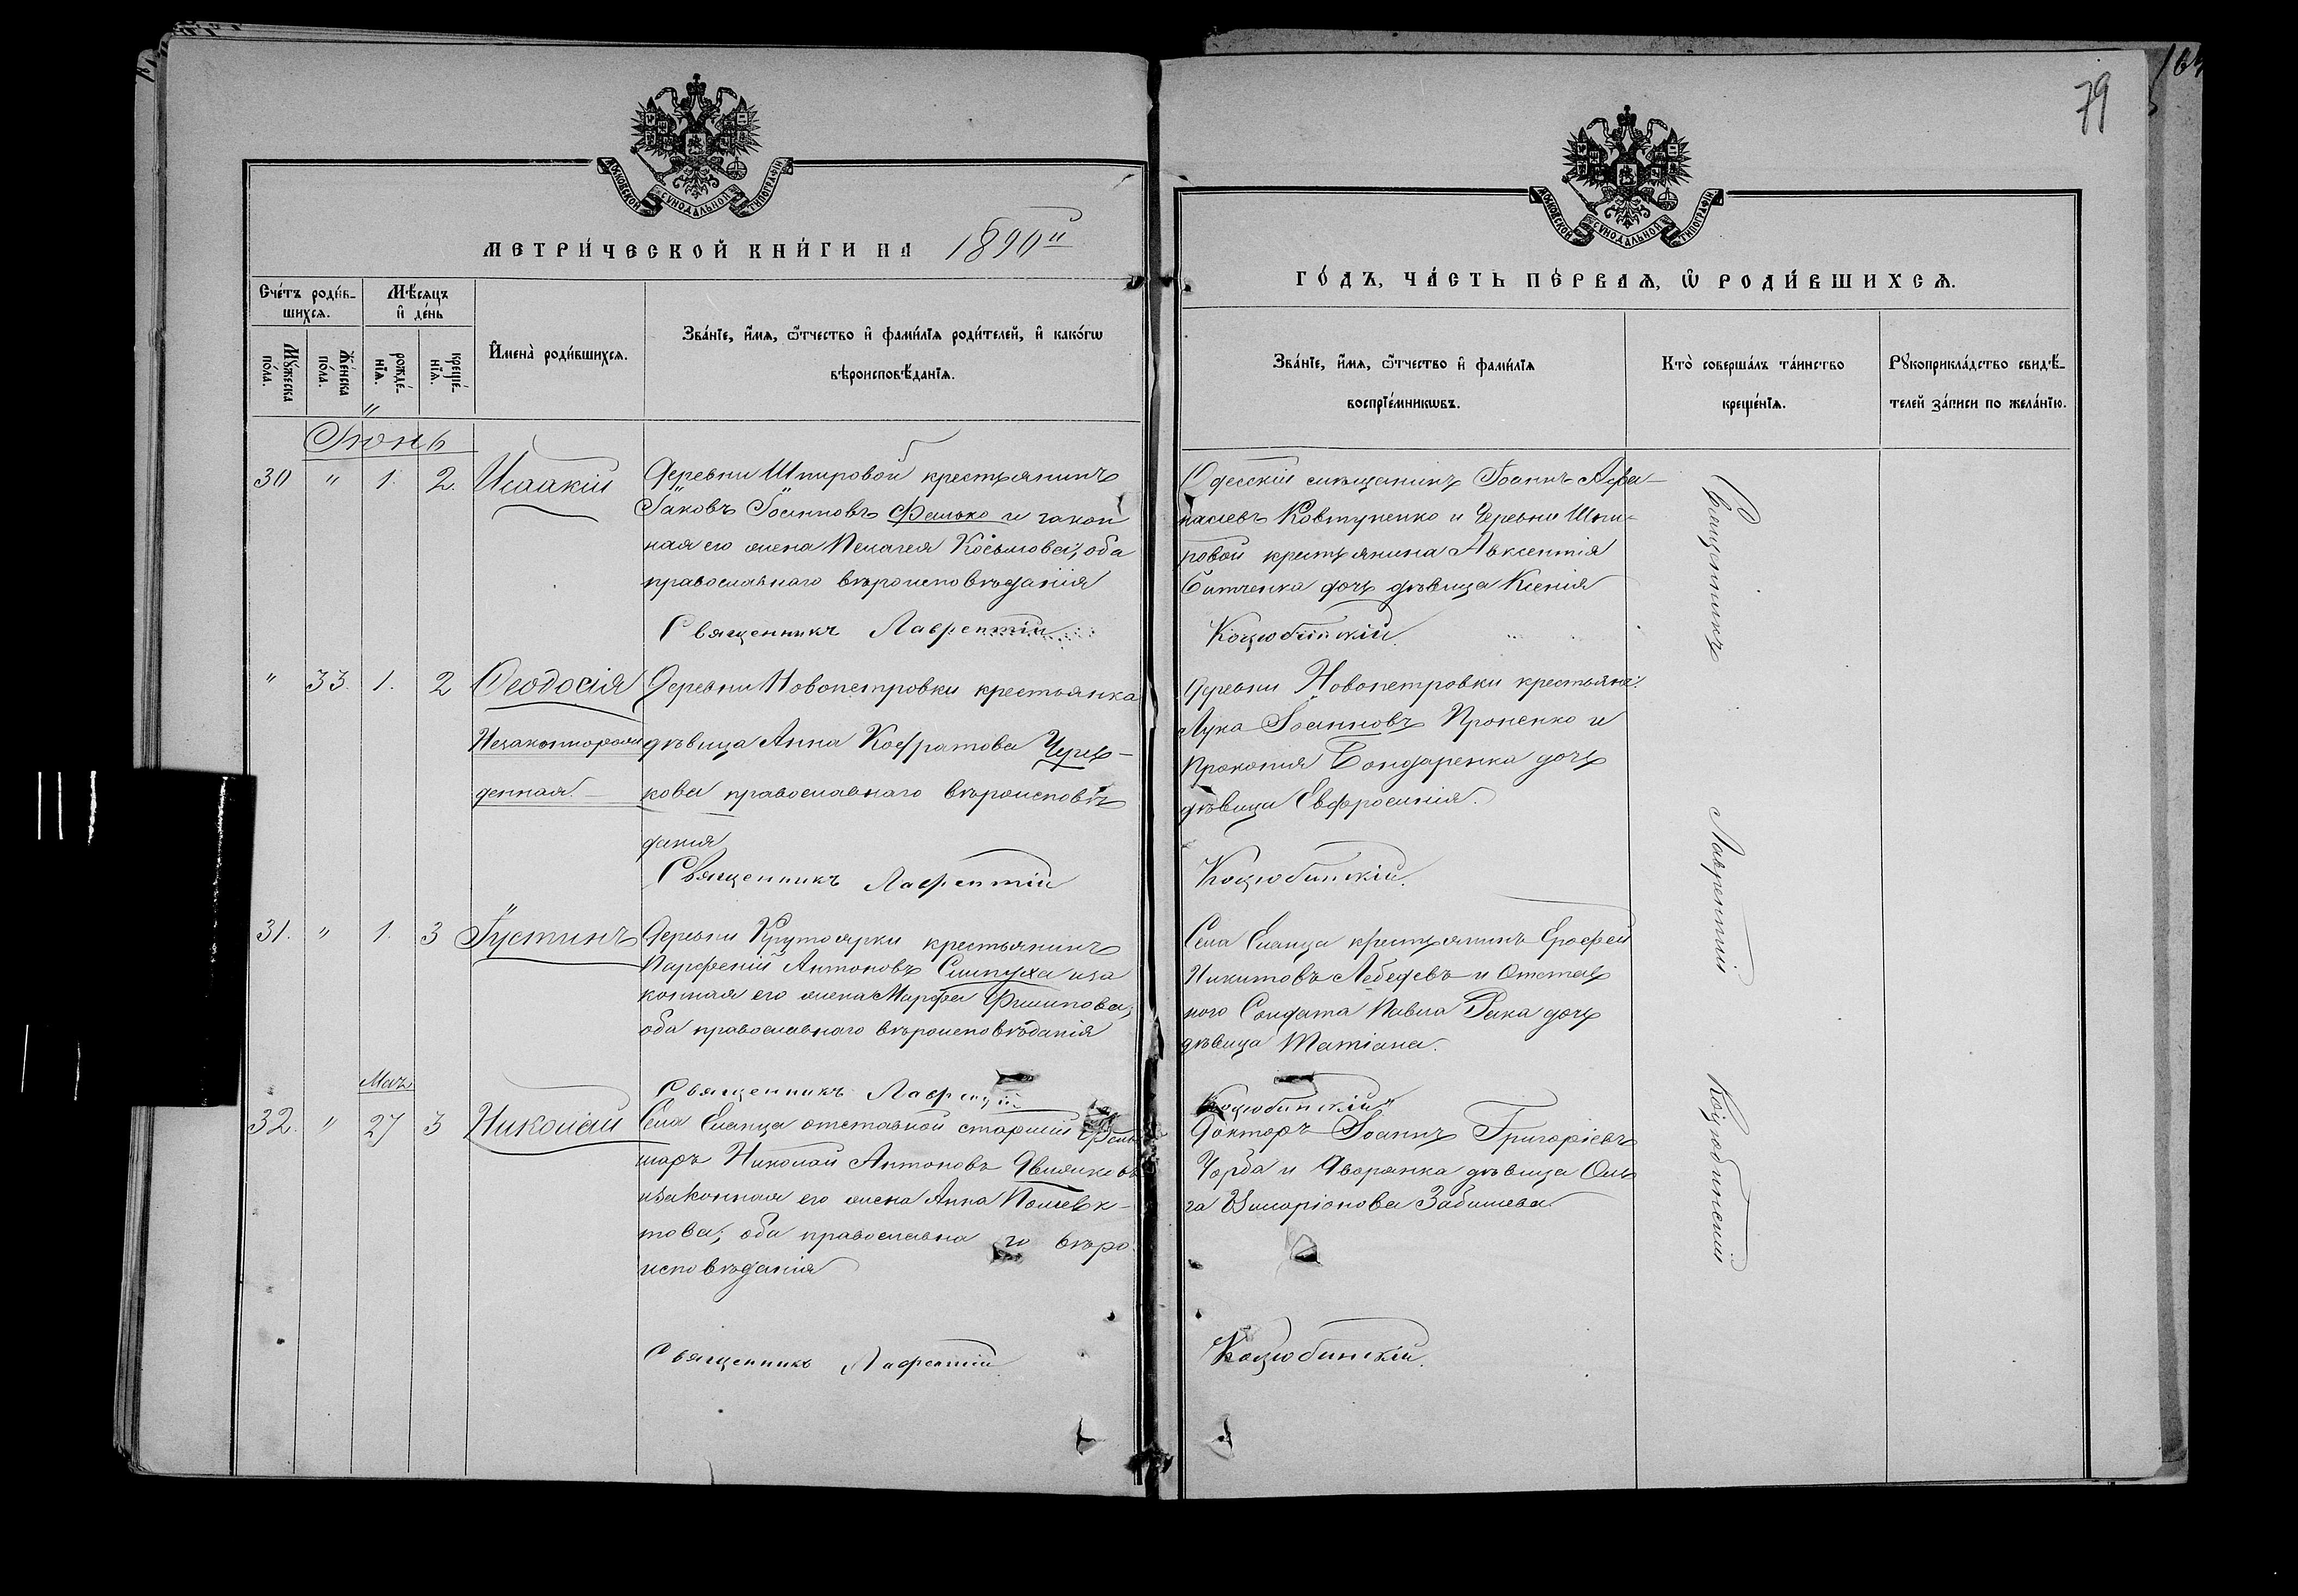 79
МОСКОВСКОЙ СѴНОДАЛЬНОЙ ТИПОГРАФІИ
МОСКОВСКОЙ СѴНОДАЛЬНОЙ ТИПОГРАФІИ
МЕТРИ́ЧЕСКОЙ КНИ́ГИ НА 1890й
ГО́ДЪ, ЧА́СТЬ ПЕ́РВАѦ, Ѿ РОДИ́ВШИХСѦ.
Сче́тъ роди́в-
шихсѧ.
Мꙋ́жеска по́ла.
Же́нска по́ла.
Мѣ́сѧцъ
и҆ де́нь
рожде́-нїѧ.
креще́-нїѧ.
И҆мена̀ роди́вшихсѧ.
Зва́нїе, и҆́мѧ, ѻ҆́тчество и҆ фами́лїѧ роди́телей, и҆ како́гѡ
вѣроисповѣ́данїѧ.
Зва́нїе, и҆́мѧ, ѻ҆́тчество и҆ фами́лїѧ
воспрїе́мникѡвъ.
Кто̀ соверша́лъ та́инство
креще́нїѧ.
Рꙋкоприкла́дство свидѣ́-
телей за́писи по жела́нїю.
Іюнь
30 " 1. 2. Исаакій
Деревни Шпировой крестьянинъ
Іаковъ Іоанновъ Фалько и закон
ная его жена Пелагея Косьмова, оба
православнаго вѣроисповѣданія
Священникъ Лаврентій
Одесскій мѣщанинъ Іоаннъ Афа-
насіевъ Ковтуненко и Деревни Шпи-
ровой крестьянина Авксентія
Битченка дочь дѣвица Ксенія
Коцюбинскій.
" 33. 1. 2 Ѳеодосія
Незаконнорож
денная.
Деревни Новопетровки крестьянка
дѣвица Анна Кодратова
кова православнаго вѣроисповѣ
данія
Священникъ Лаврентій
Деревни Новопетровки крестьяне:
Лука Іоанновъ Проненко и
Прокопія Бондаренка дочь
дѣвица Евфросинія.
Коцюбинскій.
31. " 1. 3 Іустинъ
Деревни Крутоярки крестьянинъ
Парфеній Антоновъ и за
конная его жена Марфа Филипова,
оба православнаго вѣроисповѣданія
Священникъ Лаврентій
Села Еланца крестьянинъ Ерофей
Никитовъ Лебедевъ и Отстав
ного Солдата Павла Рака дочь
дѣвица Татіана.
Коцюбинскій
Маія
32. " 27 3 Николай
Села Еланца отставной старшій Фельд
шеръ Николай Антоновъ
и законная его жена Анна Поліевк-
това, оба православна го вѣро
исповѣданія
Священникъ Лаврентій
Докторъ Іоаннъ Григоріевъ
Чорба и Дворянка дѣвица Оль
га Иларіонова
Коцюбинскій.
Священникъ Лаврентій Коцюбинскій